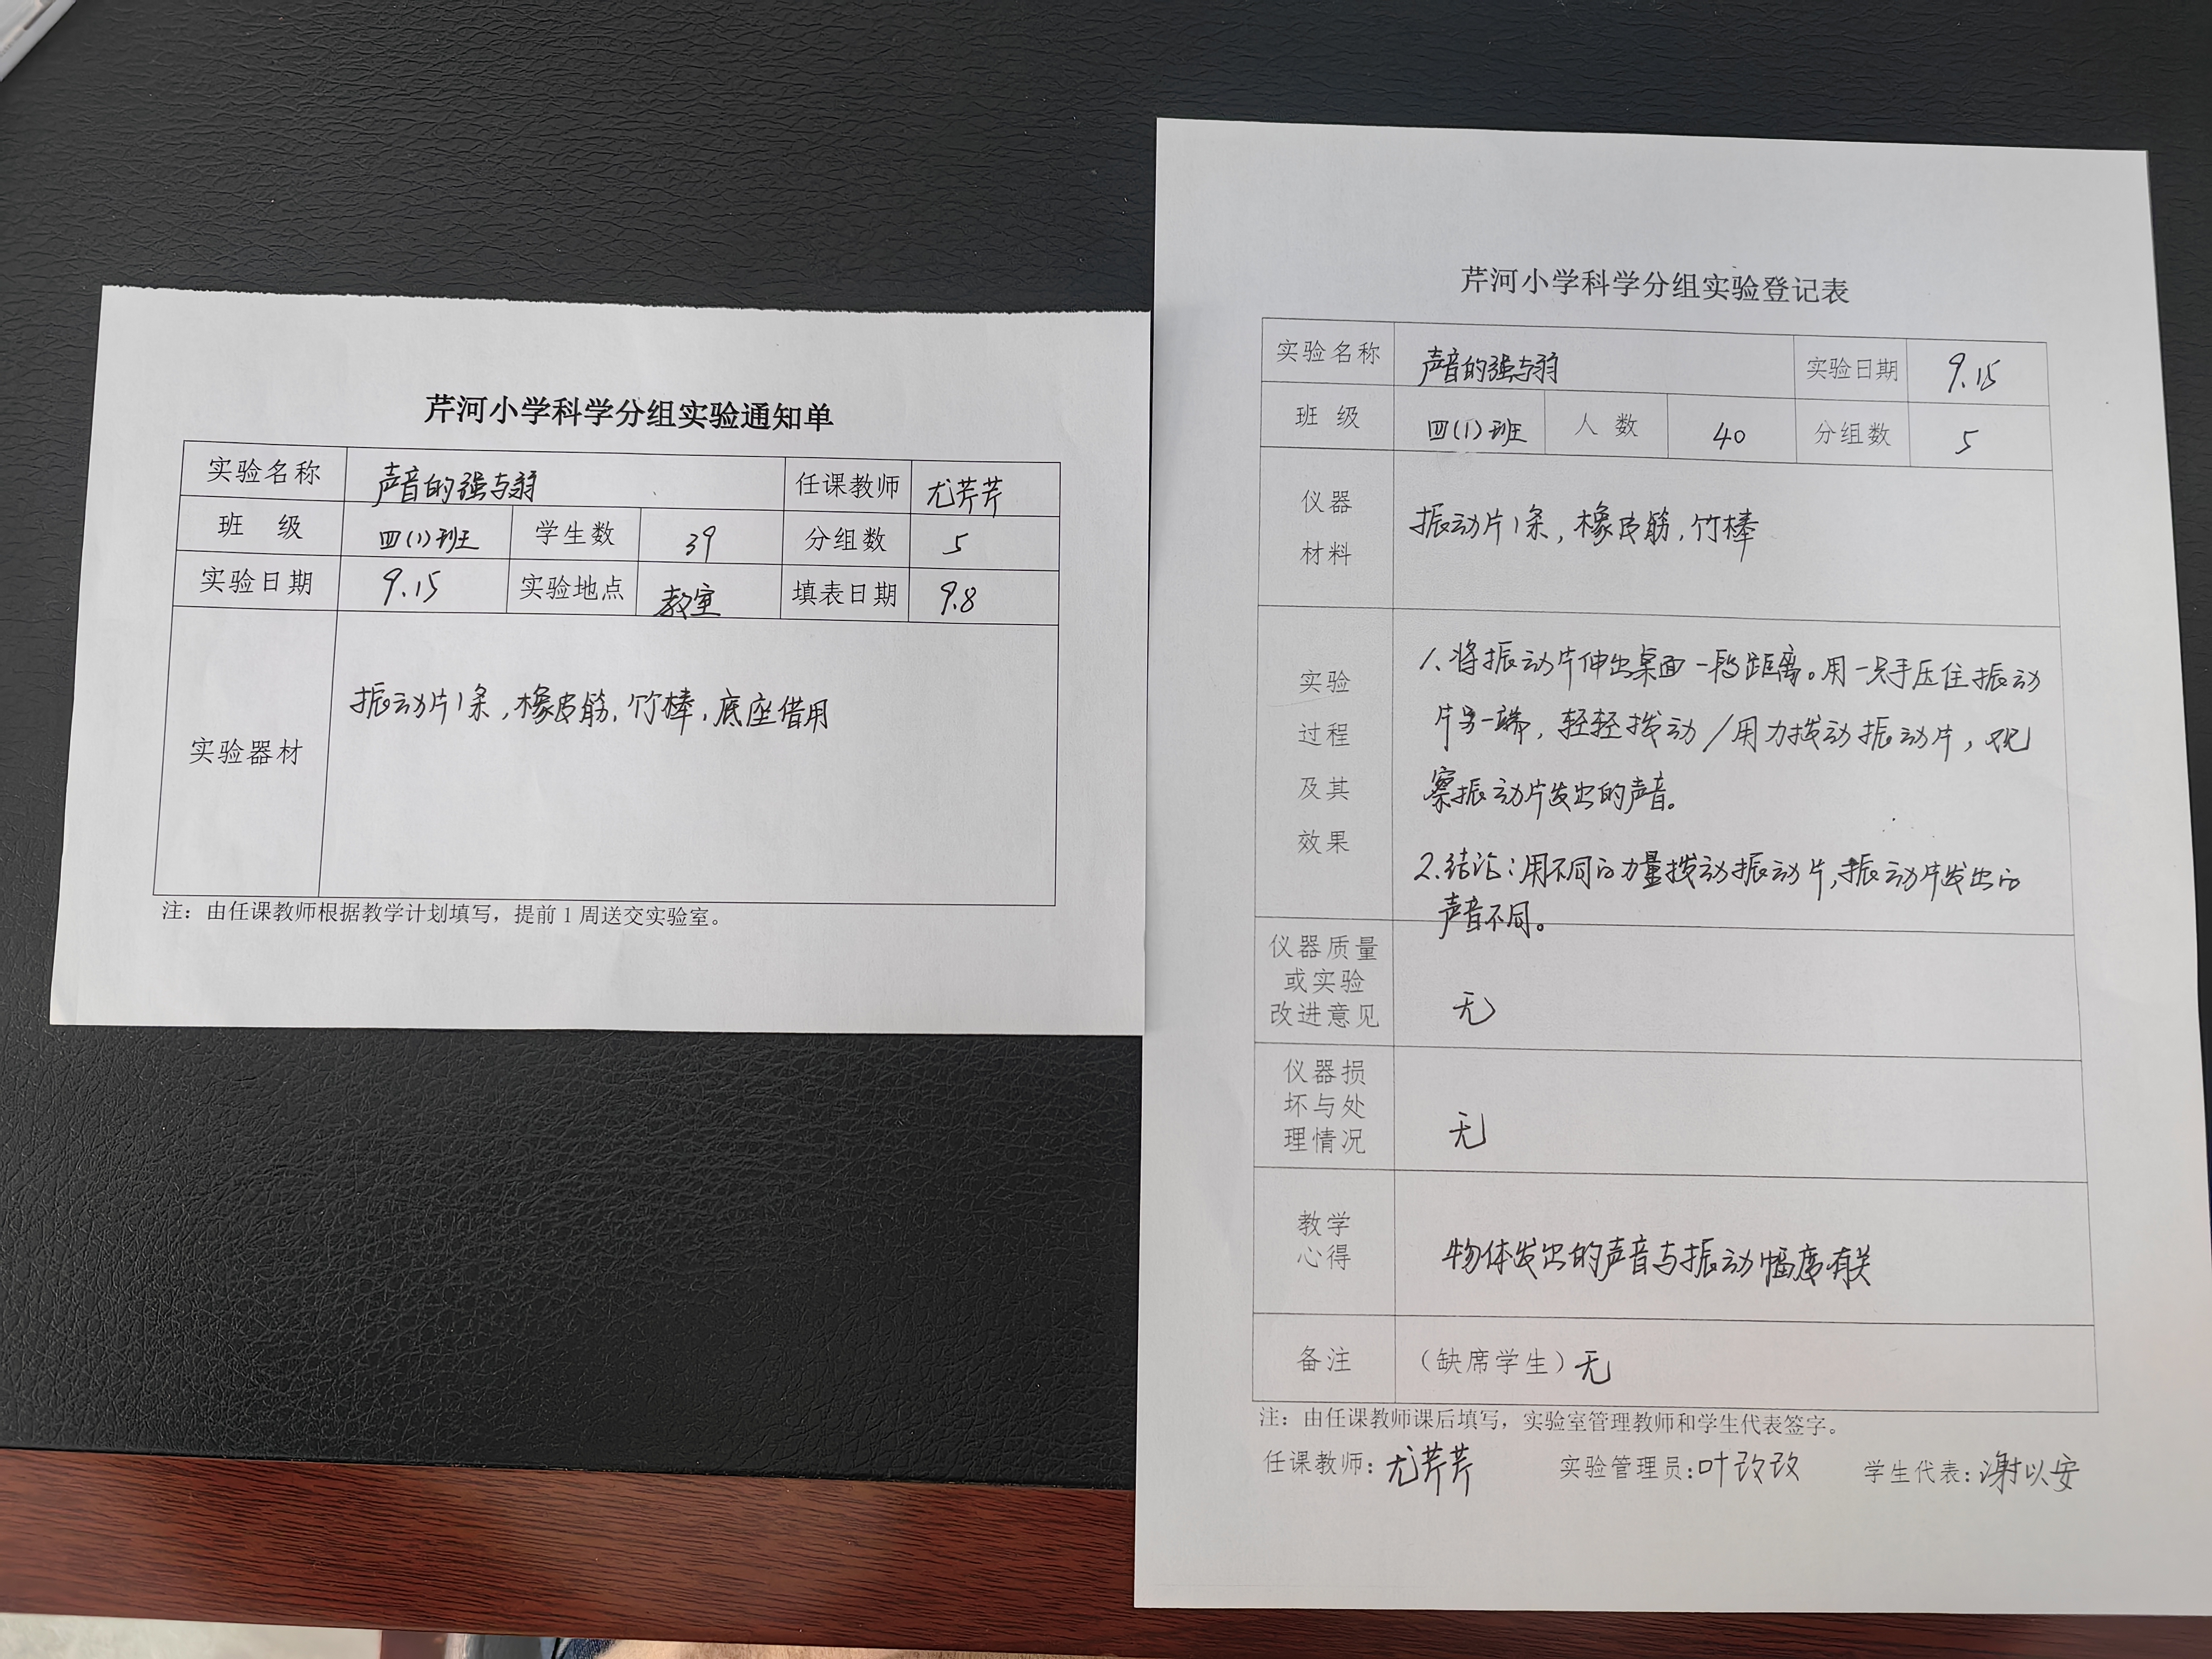 芹河小学科学分组实验通知单
实验名称 声音的强与弱 任课教师 尤芹芹
班 级 四(1)班 学生数 39 分组数 5
实验日期 9.15 实验地点 教室 填表日期 9.8
实验器材 振动片1条,橡皮筋,竹棒,底座借用
注：由任课教师根据教学计划填写，提前1周送交实验室。
芹河小学科学分组实验登记表
实验名称 声音的强与弱 实验日期 9.15
班 级 四(1)班 人 数 40 分组数 5
仪器
材料
振动片1条,橡皮筋,竹棒
实验
过程
及其
效果
1.将振动片伸出桌面一段距离。用一只手压住振动
片另一端,轻轻拨动/用力拨动振动片,观
察振动片发出的声音。
2.结论:用不同的力量拨动振动片,振动片发出的
声音不同。
仪器质量
或实验
改进意见
无
仪器损
坏与处
理情况
无
教学
心得
物体发出的声音与振动幅度有关
备注 （缺席学生）无
注：由任课教师课后填写，实验室管理教师和学生代表签字。
任课教师: 尤芹芹 实验管理员: 叶改改 学生代表: 谢以安